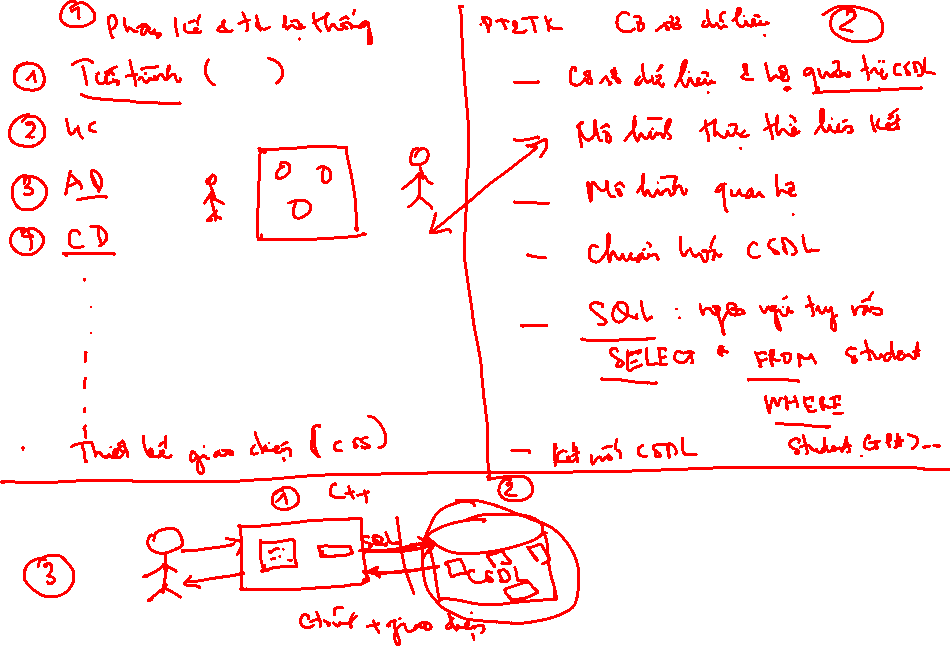 ① Phân kế & tk hệ thống
① Tiến trình ( )
② UC
③ AD
④ CD
Thiết kế giao diện (CSS)
PT&TK Cơ sở dữ liệu ②
— Cơ sở dữ liệu & hệ quản trị CSDL
Mô hình thực thể liên kết
— Mô hình quan hệ
— Chuẩn hoá CSDL
— SQL : ngôn ngữ truy vấn
SELECT * FROM Student
WHERE
Student.GPA > ...
— Kết nối CSDL
③
① C++ ②
SQL
CSDL
+ giao diện